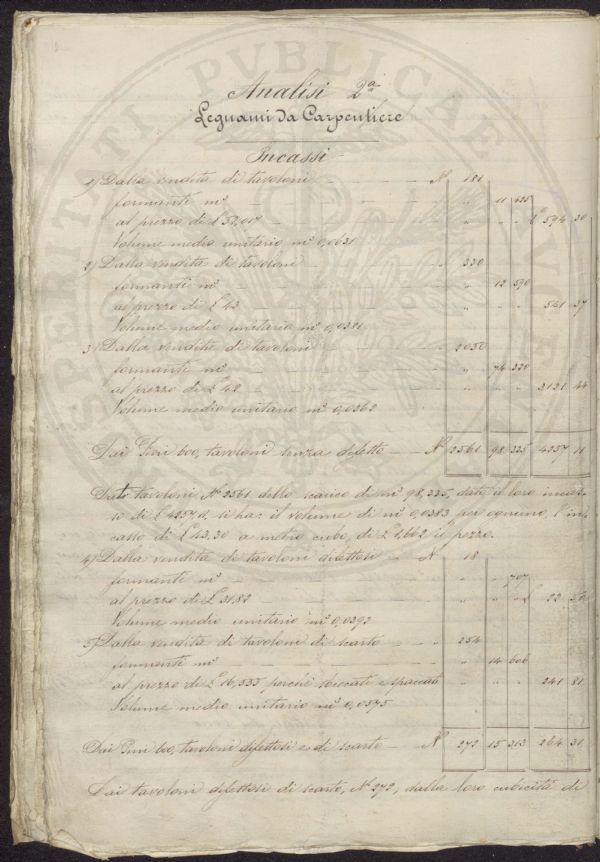 Analisi 2ª
Legnami da Carpentiere
Incassi
1) Dalla vendita di tavoloni N° 181
formanti m³ " 11 425
al prezzo di £ 52,017 " " " £ 594 30
Volume medio unitario m³ 0,0631
2) Dalla vendita di tavoloni " 330
formanti m³ " 12 590
al prezzo di £ 43 " " " 561 37
Volume medio unitario m³ 0,0381
3) Dalla vendita di tavoloni 2050
formanti m³ " 74 320
al prezzo di £ 42 " " " 3121 44
Volume medio unitario m³ 0,0362
Dai tavoloni senza difetto N° 2561 98 335 4257 11
Dati tavoloni N° 2561 dello scarico di m³ 98,335, dato il loro incas-
so di £ 4257,11, si ha: il volume di m³ 0,0383 per ognuno, l'in-
casso di £ 43.30 a metro cubo, di £ 1,662 il pezzo.
4) Dalla vendita di tavoloni difettosi N° 18
formanti m³ " " 707
al prezzo di £ 31,82 " " " £ 22 50
Volume medio unitario m³ 0,0392
5) Dalla vendita di tavoloni di scarto " 254
formanti m³ " 14 606
al prezzo di £ 16,555 perchè e spaccati " " " 241 81
Volume medio unitario m³ 0,0575
Dai tavoloni difettosi e di scarto N° 272 15 313 264 31
Dai tavoloni difettosi di scarto, N° 272, dalla loro cubicità di